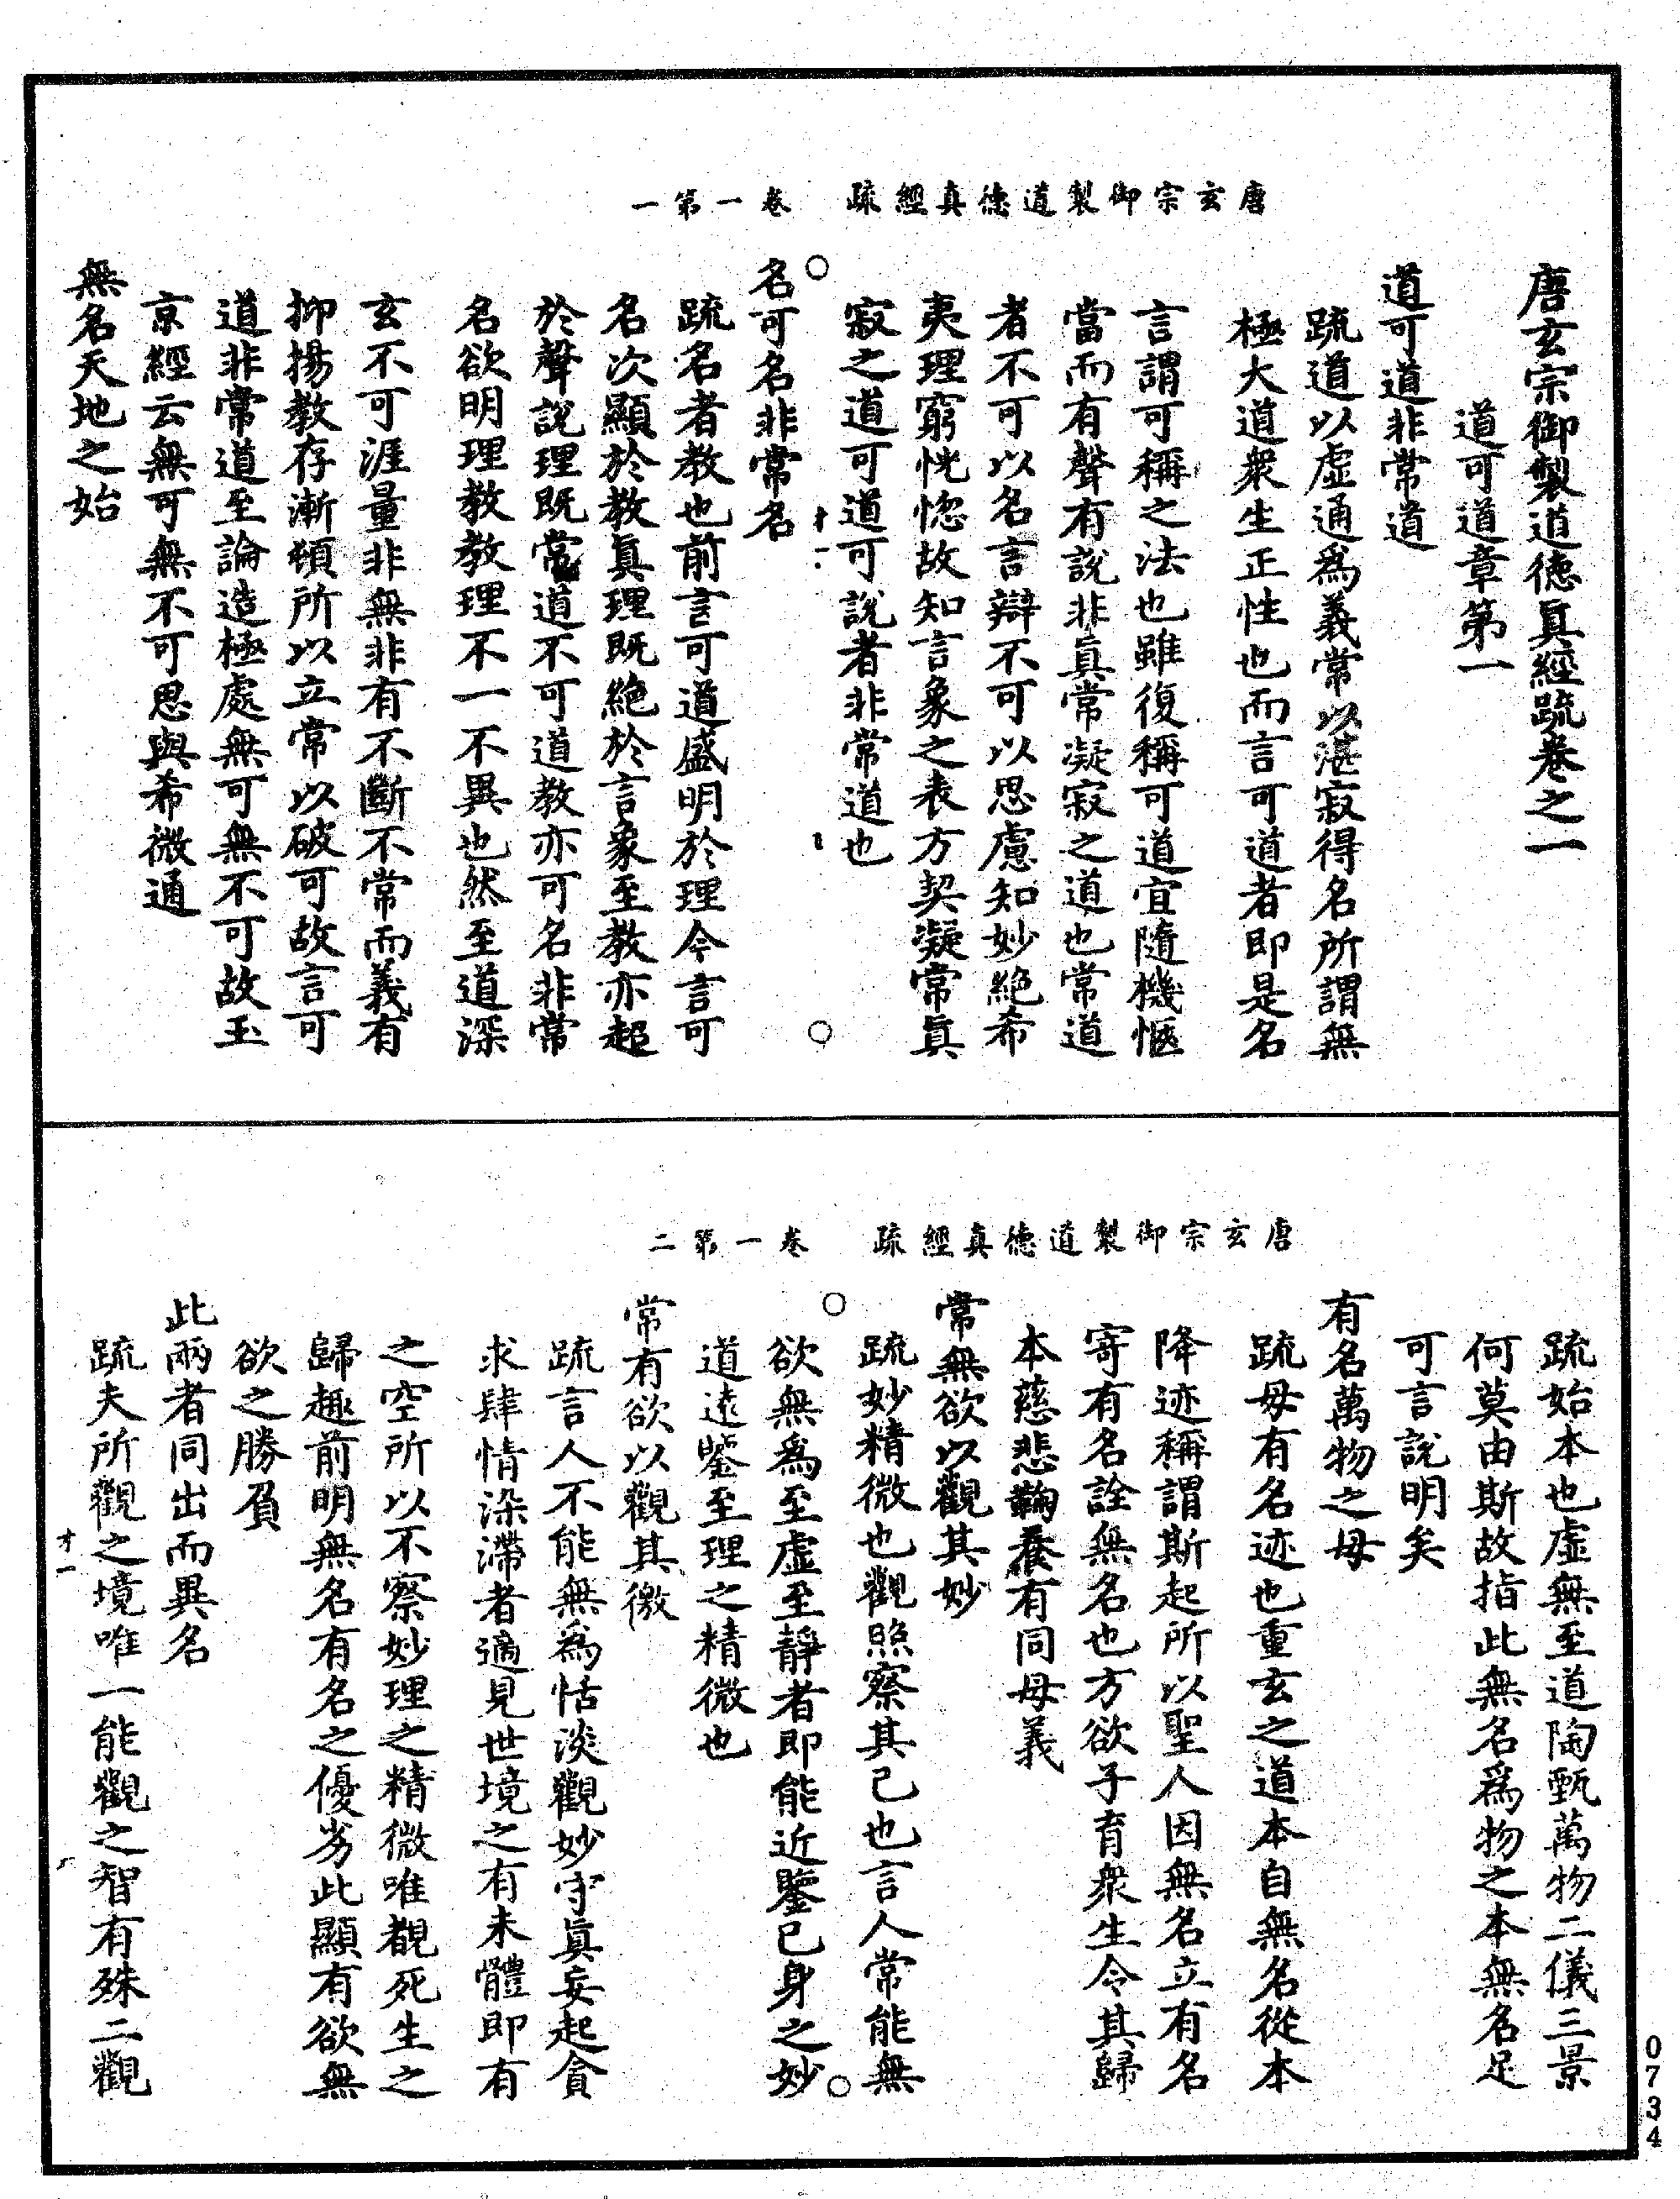 唐玄宗御製道德真經疏　卷一第一
唐玄宗御製道德真經疏卷之一
道可道章第一
道可道非常道
疏道以虛通爲義常以湛寂得名所謂無
極大道衆生正性也而言可道者即是名
言謂可稱之法也雖復稱可道宜隨機愜
當而有聲有說非真常凝寂之道也常道
者不可以名言辯不可以思慮知妙絕希
夷理窮恍惚故知言象之表方契凝常真
寂之道可道可說者非常道也
名可名非常名
疏名者教也前言可道盛明於理今言可
名次顯於教真理既絕於言象至教亦超
於聲說理既常道不可道教亦可名非常
名欲明理教教理不一不異也然至道深
玄不可涯量非無非有不斷不常而義有
抑揚教存漸頓所以立常以破可故言可
道非常道至論造極處無可無不可故玉
京經云無可無不可思與希微通
無名天地之始
唐玄宗御製道德真經疏　卷一第二
疏始本也虛無至道陶甄萬物二儀三景
何莫由斯故指此無名爲物之本無名足
可言說明矣
有名萬物之母
疏母有名迹也重玄之道本自無名從本
降迹稱謂斯起所以聖人因無名立有名
寄有名詮無名也方欲子育衆生令其歸
本慈悲鞠養有同母義
常無欲以觀其妙
疏妙精微也觀照察其己也言人常能無
欲無爲至虛至靜者即能近鑒己身之妙
道遠鑒至理之精微也
常有欲以觀其徼
疏言人不能無爲恬淡觀妙守真妄起貪
求肆情染滯者適見世境之有未體即有
之空所以不察妙理之精微唯覩死生之
歸趣前明無名有名之優劣此顯有欲無
欲之勝負
此兩者同出而異名
疏夫所觀之境唯一能觀之智有殊二觀
0734